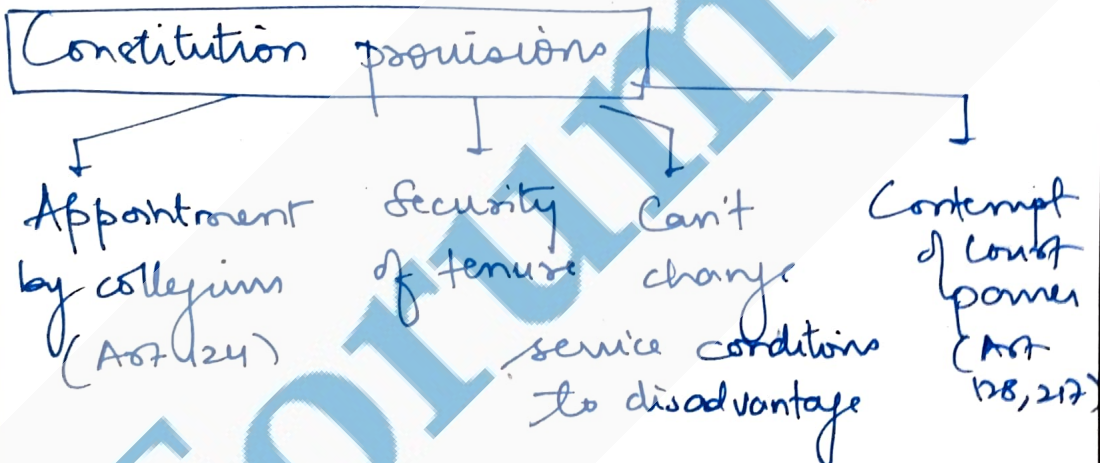 Constitution provisions
Appointment
by collegium
(Art 124)
Security
of tenure
Can't
change
service conditions
to disadvantage
Contempt
of Court
power
(Art
128, 217)
forum